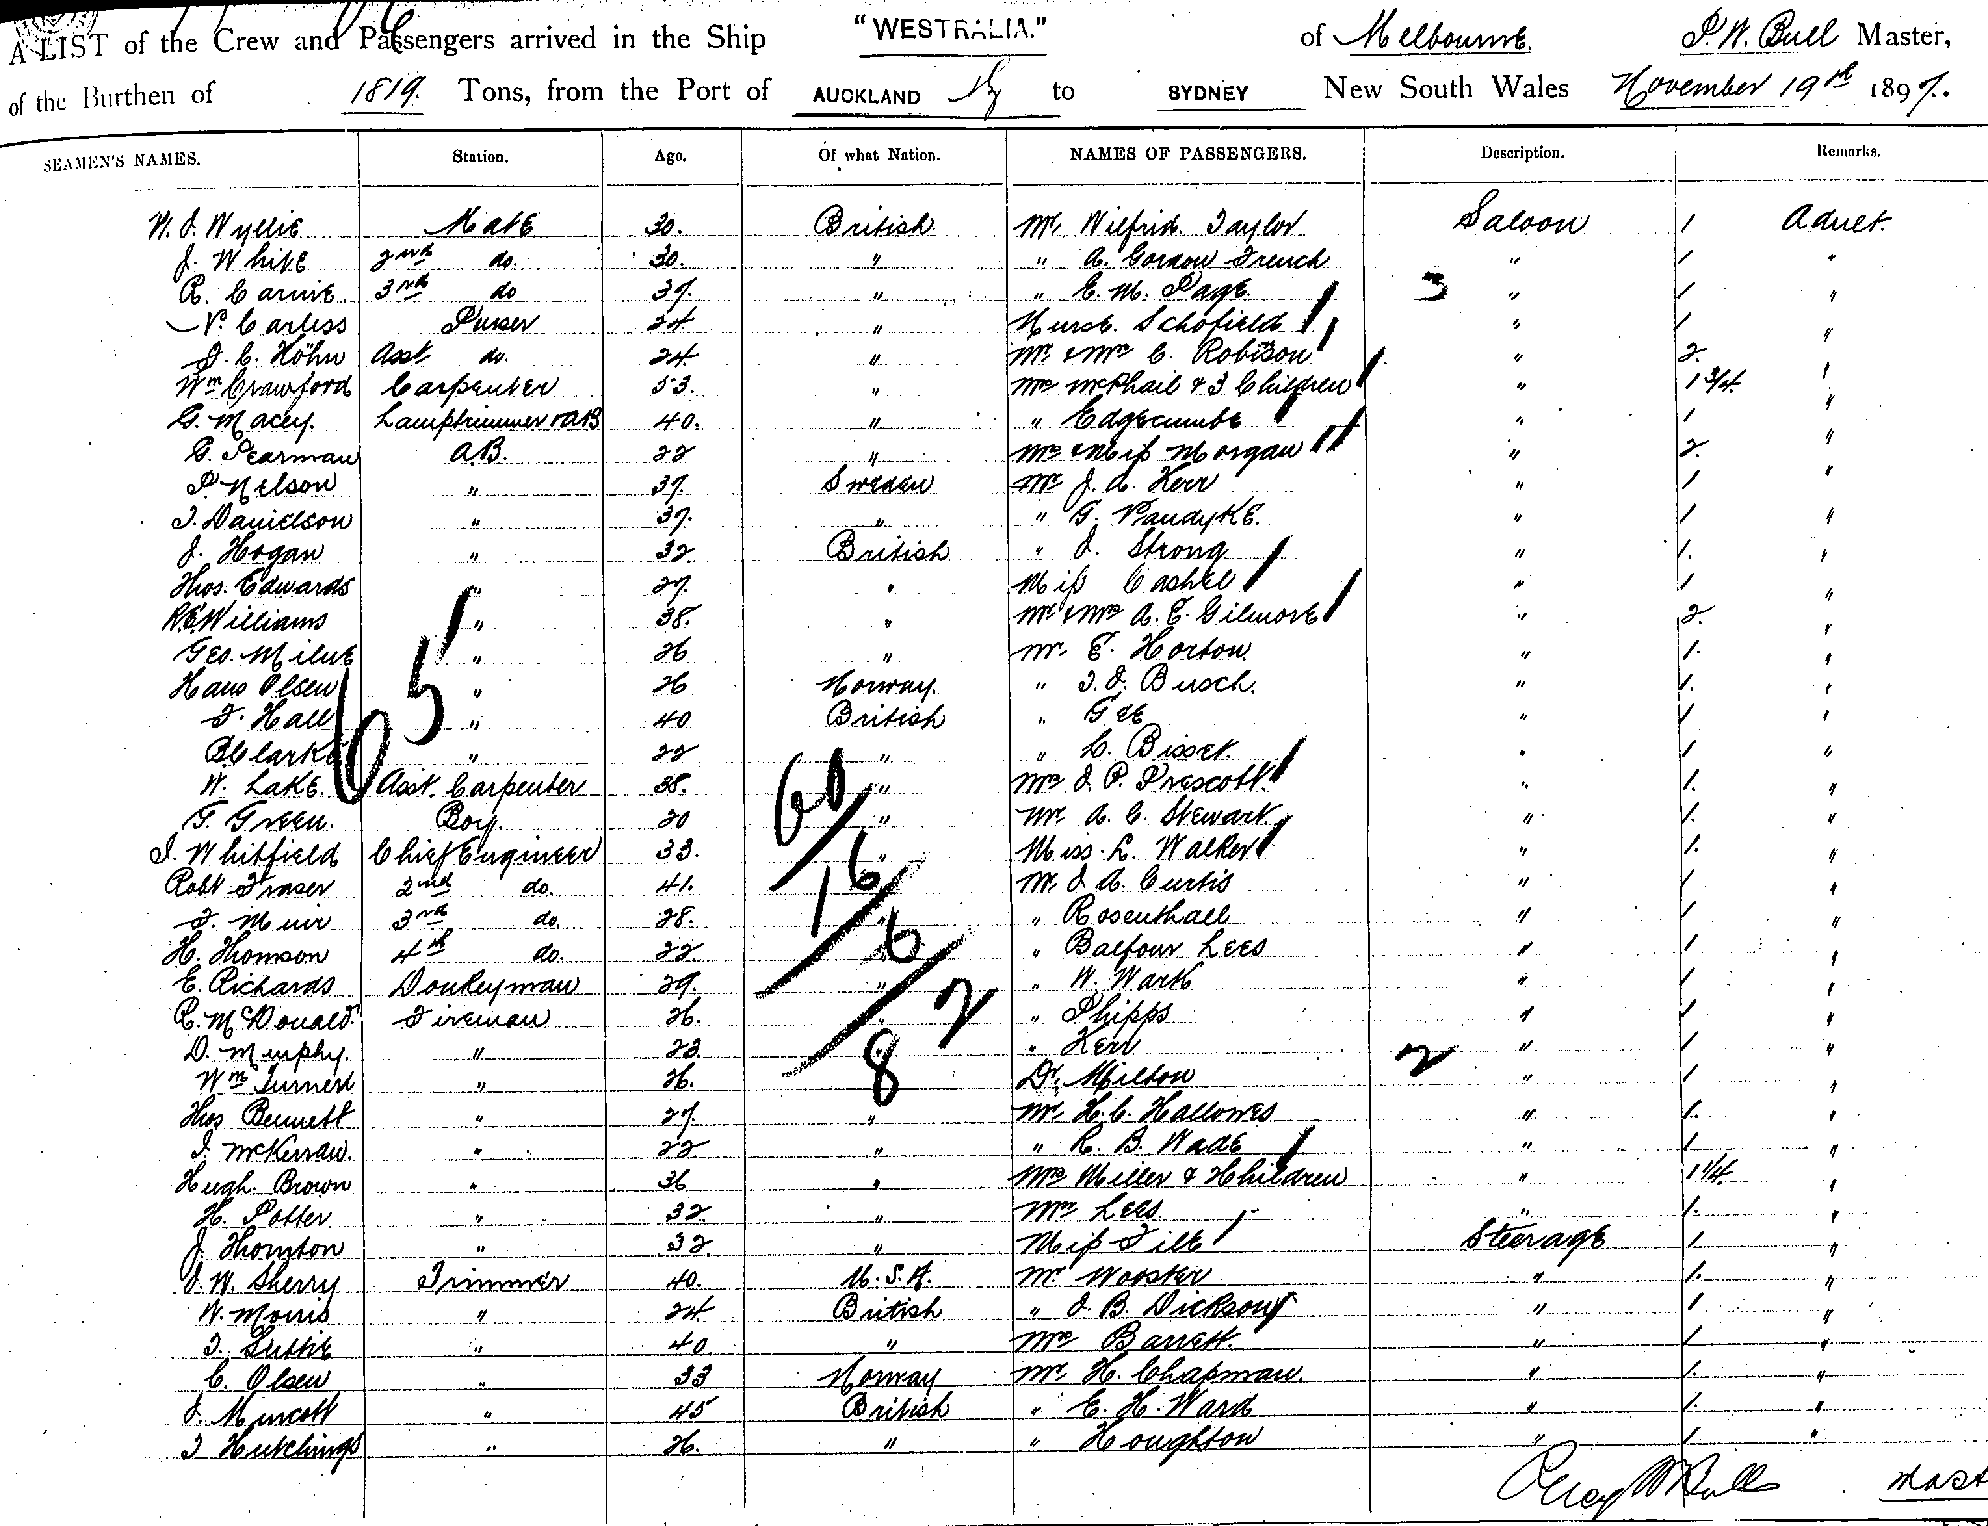 A LIST of the Crew and Passengers arrived in the Ship "WESTRALIA." of Melbourne. P. W. Bull Master,
of the Burthen of 1819. Tons, from the Port of AUCKLAND to SYDNEY New South Wales November 19th 1897.
SEAMEN'S NAMES. Station. Age. Of what Nation. NAMES OF PASSENGERS. Description. Remarks.
W. J. Wyllie Mate 30. British Mr. Wilfrid Taylor Saloon 1 Adult.
J. White 2nd do 30. " " A. Gordon French " 1 "
R. Carnie. 3rd do 37. " " E. M. Page 3 " 1 "
V. Carliss Purser 24 " Nurse Schofield " 1 "
J. C. Höhn Asst do. 24. " Mr. & Mrs C. Robison " 2. "
Wm Crawford Carpenter 53. " Mrs McPhail & 3 Children " 1 3/4. "
G. Macey. Lamptrimmer & AB 40. " " Edgecumbe " 1 "
G. Pearman A.B. 22 " Mrs & Miss Morgan " 2. "
P. Nelson " 37. Sweden Mr J. A. Kerr " 1 "
J. Danielson " 37. " " G. Vandyke. " 1 "
J. Hogan " 32 British " J. Strong " 1. "
Thos. Edwards " 27. " Miss Cashel " 1 "
R.E. Williams " 38. " Mr & Mrs A. E. Gilmore " 2. "
Geo. Milne " 26 " Mr. E. Horton. " 1. "
Hans Olsen " 26 Norway. " J. J. Busch. " 1. "
F. Hall " 40 British " Gee " 1 "
B Clarke " 22 " " C. Bisset. " 1 "
W. Lake. Asst. Carpenter 38. " Mrs J. P. Prescott. " 1. "
G. Green. Boy. 20 " Mr. A. C. Stewart. " 1. "
J. Whitfield Chief Engineer 33. " Miss. L. Walker " 1. "
Robt Fraser 2nd do. 41. Mr. J. A. Curtis " 1 "
F. Muir 3rd do. 28. " " Rosenthall " 1 "
H. Thomson 4th do. 22 " Balfour Lees " 1 "
E. Richards Donkeyman 29. " " W. Wark " 1 "
R. McDonald. Fireman 26. " " Phipps " 1 "
D. Murphy. " 23. " Kerr 2 " 1 "
Wm Turner " 26. Dr. Milton " 1 "
Thos Bennett " 27. " Mr. H. C. Hallowes " 1. "
J. McKerrow. " 22 " " R. B. Wade " 1 "
Hugh. Brown " 36 " Mrs Miller & 4 Children " 1 1/4. "
H. Potter " 32 " Mrs Lees " 1. "
J. Thomton " 32 " Miss Tilt Steerage 1. "
J. W. Sherry Trimmer 40. U.S.A. Mr Worster " 1. "
W. Morris " 24 British " J. B. Dickson " 1 "
J. Suttie " 40 " Mrs Barrett. " 1 "
C. Olsen " 33 Norway Mr. H. Chapman " 1. "
J. Murcott " 45 British " E. H. Ward " 1. "
J Hutchings " 26. " " Houghton " 1 "
65
60
16
6
2
8